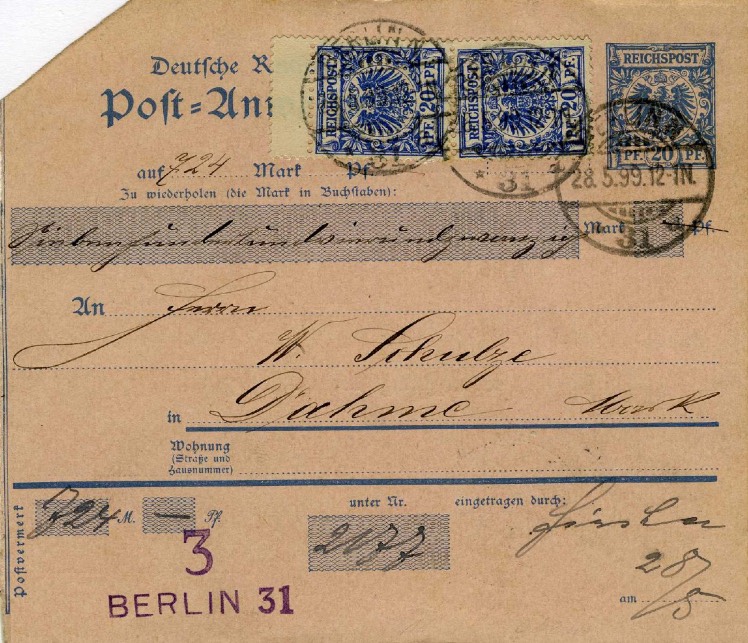 Deutsche R
Post=An
REICHSPOST
20 PF.
REICHSPOST
20 PF.
REICHSPOST
PF. 20 PF.
BERLIN
31
31
28.5.99.12-1N.
31
auf 724 Mark Pf.
Zu wiederholen (die Mark in Buchstaben):
Siebenhundertundvierundzwanzig Mark — Pf.
An Herrn
W. Schulze
in Dahme Mark
Wohnung
(Straße und
Hausnummer)
Postvermerk
724 M. — Pf. unter Nr. 2077 eingetragen durch:
28/5
am
3
BERLIN 31